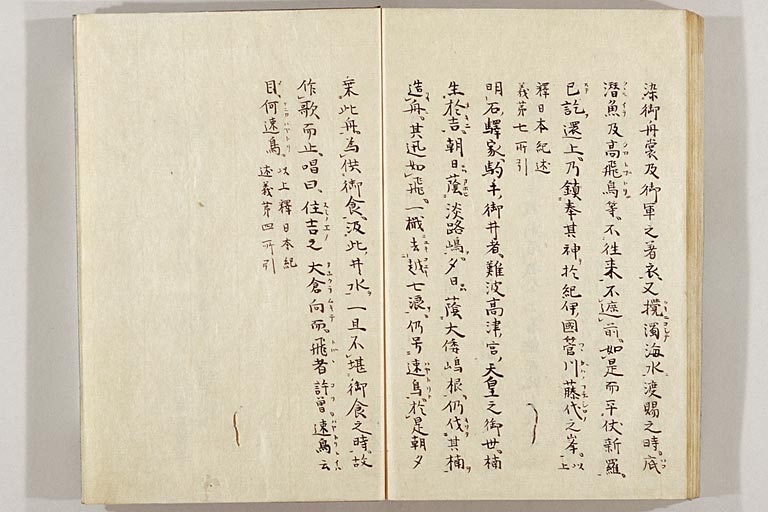 染御舟裳及御軍之著衣又攪濁海水渡賜之時底
潜魚及高飛鳥等不往来不遮前如是而平伏新羅
已訖還上乃鎮奉其神於紀伊國管川藤代之峯以上
釋日本紀述
義第七所引
明石驛家駒手御井者難波高津宮天皇之御世楠
生於吉朝日蔭淡路嶋夕日蔭大倭嶋根仍伐其楠
造舟其迅如飛一檝去越七浪仍号速鳥於是朝夕
乗此舟為供御食汲此井水一旦不堪御食之時故
作歌而止唱曰住吉之大倉向而飛者許曾速鳥云
目何速鳥以上釋日本紀
述義第四所引